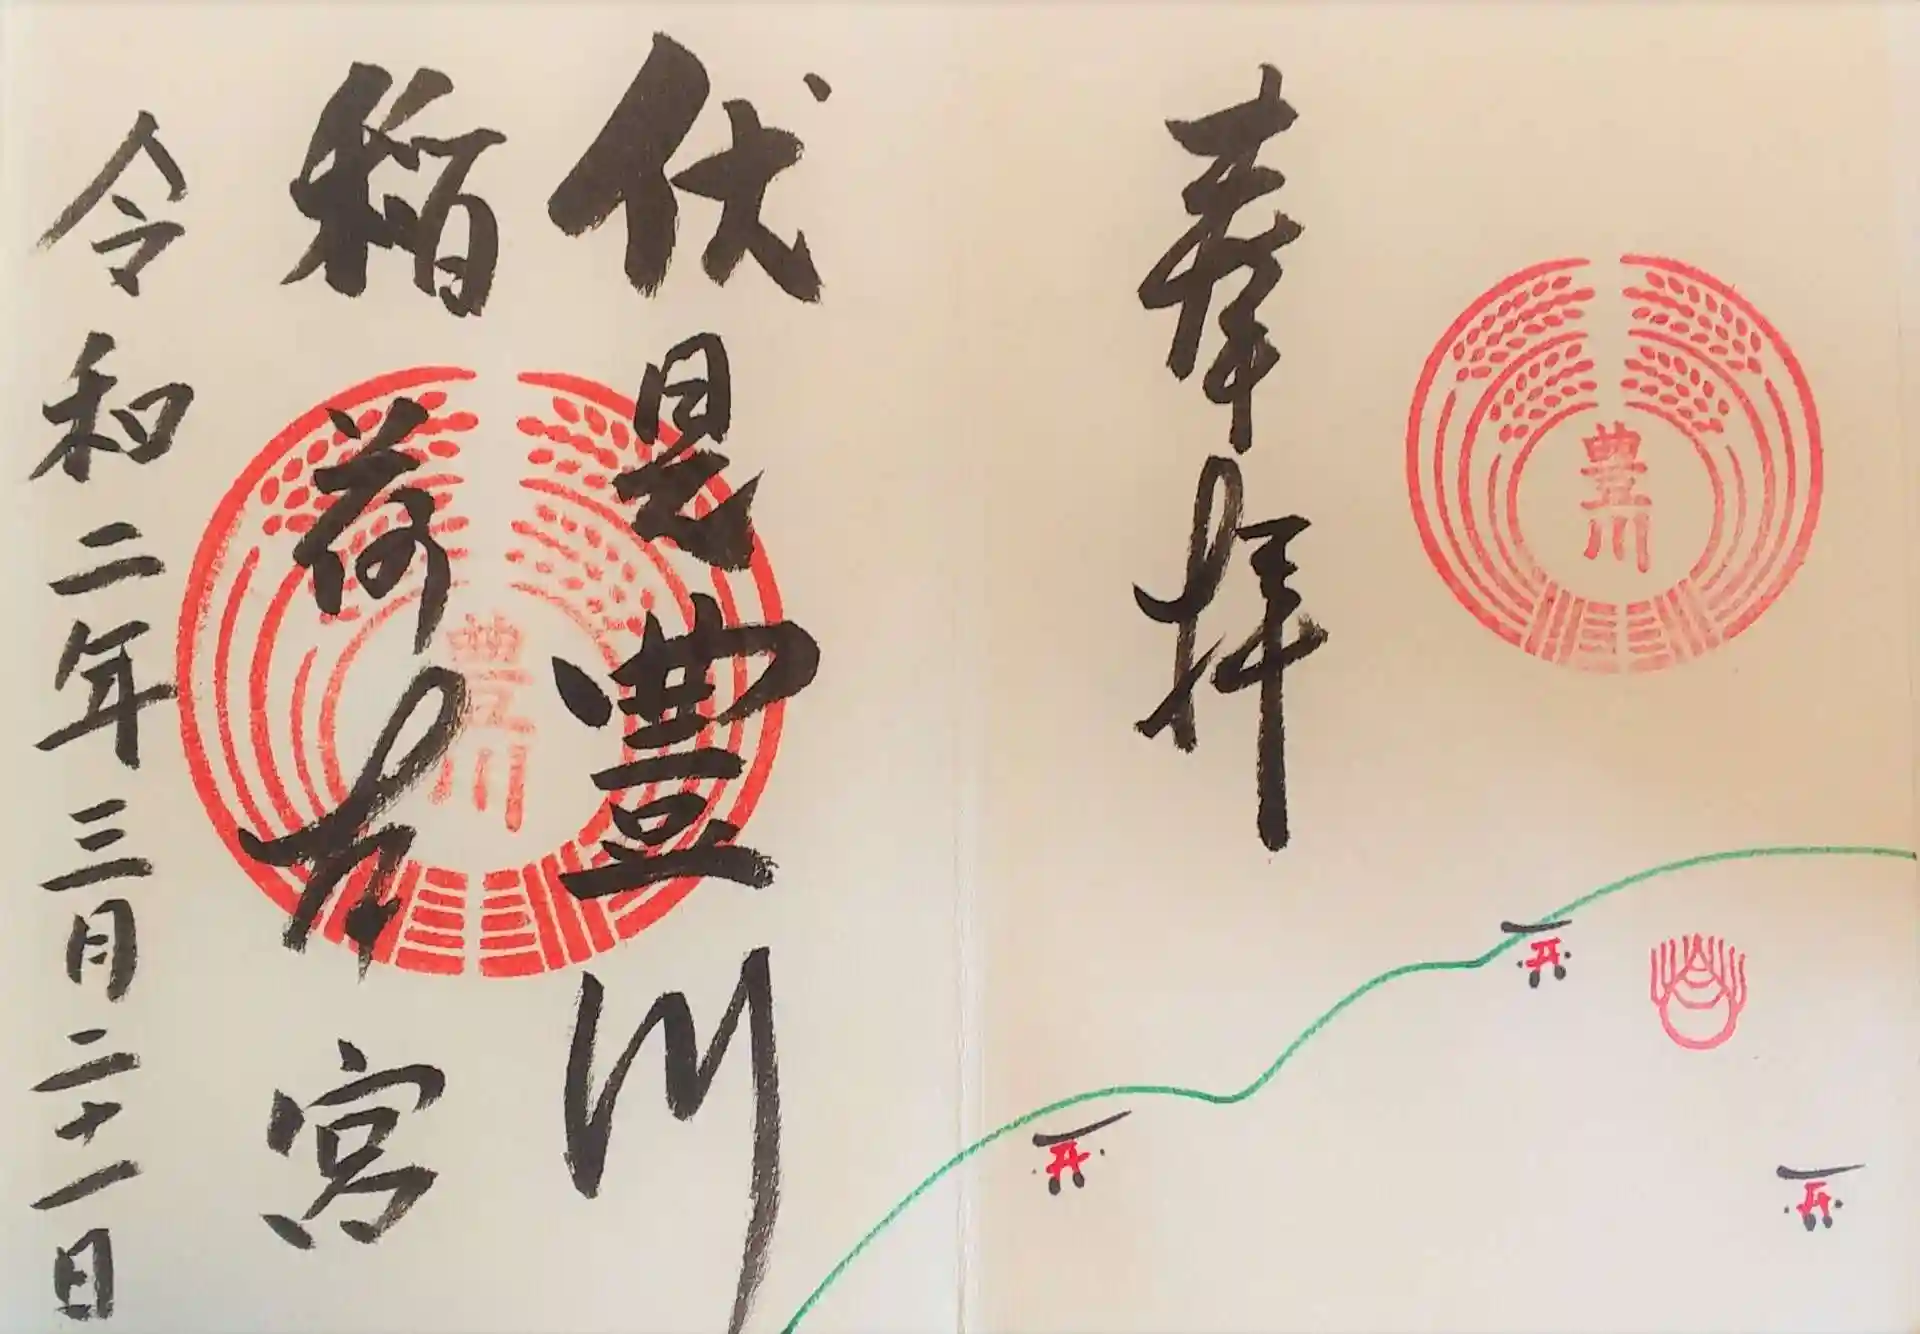 豊川
奉拝
伏見豊川
稲荷本宮
豊川
令和二年三月二十一日